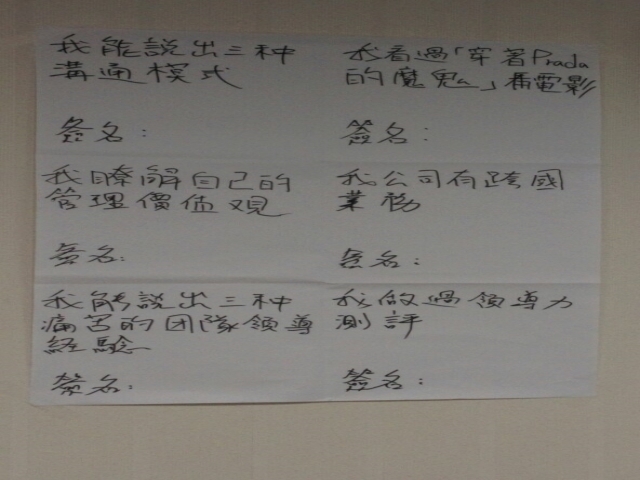 我能說出三种
溝通模式
签名：
我看過「穿著Prada
的魔鬼」電影
簽名：
我瞭解自己的
管理價值观
签名：
我公司有跨國
業務
签名：
我能說出三种
痛苦的团隊領導
經驗
签名：
我做過領导力
測評
簽名：